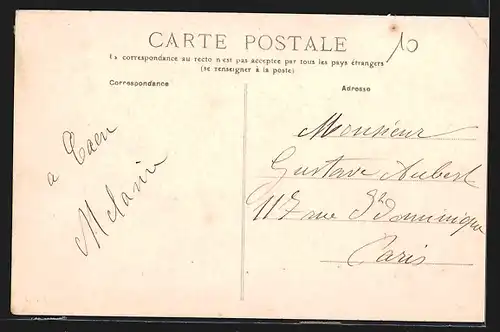 CARTE POSTALE
10
La correspondance au recto n'est pas acceptée par tous les pays étrangers
(se renseigner à la poste)
Correspondance
Adresse
à Caen
Melanie
Monsieur
Gustave Aubert
117 rue St Dominique
Paris